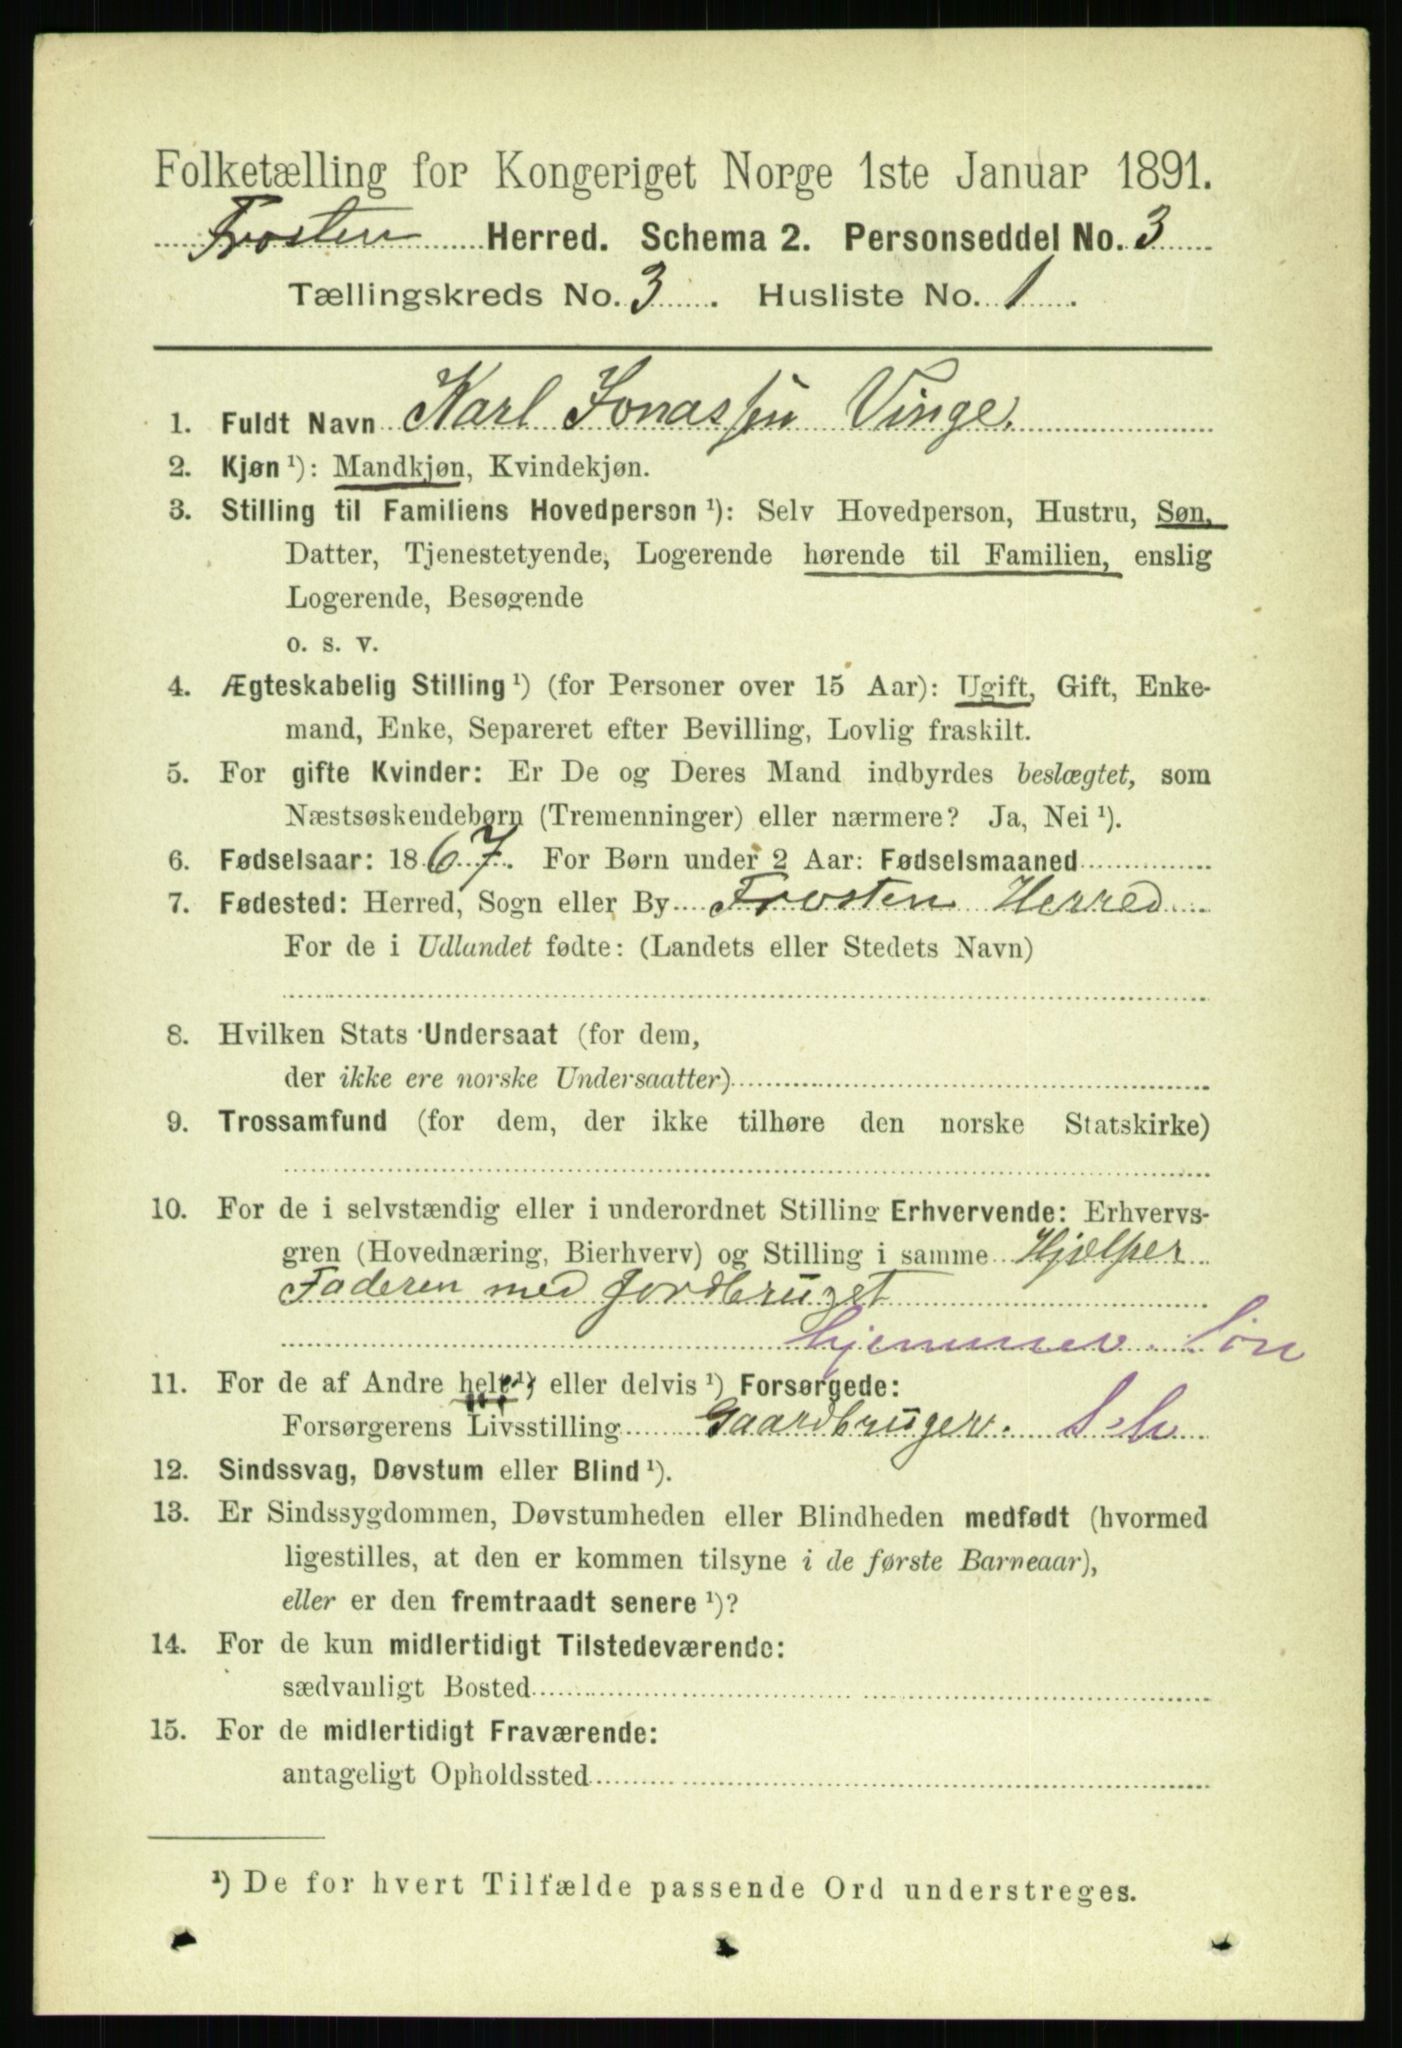 Folketælling for Kongeriget Norge 1ste Januar 1891.
Frosten Herred. Schema 2. Personseddel No. 3
Tællingskreds No. 3. Husliste No. 1.
1. Fuldt Navn Karl Jonassen Vinge.
2. Kjøn ¹): Mandkjøn, Kvindekjøn.
3. Stilling til Familiens Hovedperson ¹): Selv Hovedperson, Hustru, Søn,
Datter, Tjenestetyende, Logerende hørende til Familien, enslig
Logerende, Besøgende
o. s. v.
4. Ægteskabelig Stilling ¹) (for Personer over 15 Aar): Ugift, Gift, Enke-
mand, Enke, Separeret efter Bevilling, Lovlig fraskilt.
5. For gifte Kvinder: Er De og Deres Mand indbyrdes beslægtet, som
Næstsøskendebørn (Tremenninger) eller nærmere? Ja, Nei ¹).
6. Fødselsaar: 1867. For Børn under 2 Aar: Fødselsmaaned
7. Fødested: Herred, Sogn eller By Frosten Herred
For de i Udlandet fødte: (Landets eller Stedets Navn)
8. Hvilken Stats Undersaat (for dem,
der ikke ere norske Undersaatter)
9. Trossamfund (for dem, der ikke tilhøre den norske Statskirke)
10. For de i selvstændig eller i underordnet Stilling Erhvervende: Erhvervs-
gren (Hovednæring, Bierhverv) og Stilling i samme Hjælper
Faderen med Jordbruget
hjemmev. Søn
11. For de af Andre helt ¹) eller delvis ¹) Forsørgede:
Forsørgerens Livsstilling Gaardbruger. Selv
12. Sindssvag, Døvstum eller Blind ¹).
13. Er Sindssygdommen, Døvstumheden eller Blindheden medfødt (hvormed
ligestilles, at den er kommen tilsyne i de første Barneaar),
eller er den fremtraadt senere ¹)?
14. For de kun midlertidigt Tilstedeværende:
sædvanligt Bosted
15. For de midlertidigt Fraværende:
antageligt Opholdssted
¹) De for hvert Tilfælde passende Ord understreges.